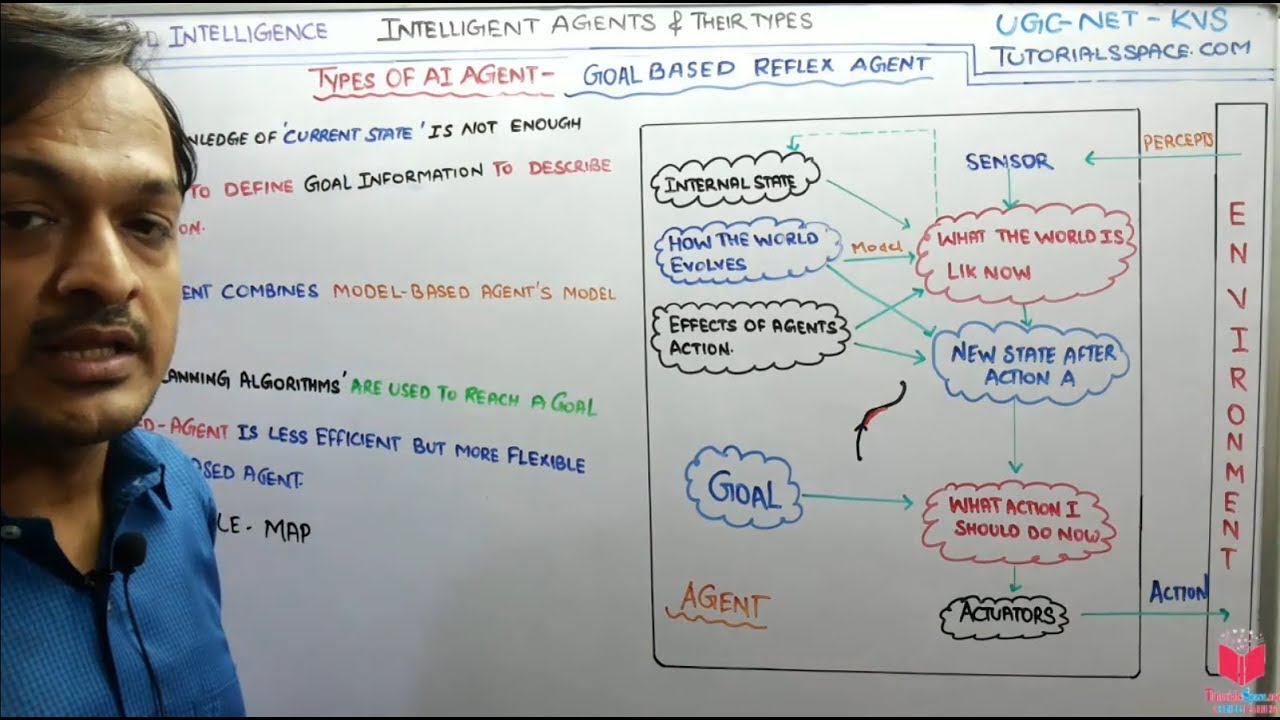 INTELLIGENCE
INTELLIGENT AGENTS & THEIR TYPES
UGC-NET-KVS
TUTORIALSSPACE.COM
TYPES OF AI AGENT- GOAL BASED REFLEX AGENT
OF 'CURRENT STATE' IS NOT ENOUGH
TO DEFINE GOAL INFORMATION TO DESCRIBE
COMBINES MODEL-BASED AGENT'S MODEL
ALGORITHMS' ARE USED TO REACH A GOAL
-AGENT IS LESS EFFICIENT BUT MORE FLEXIBLE
AGENT.
- MAP
INTERNAL STATE
HOW THE WORLD
EVOLVES
EFFECTS OF AGENTS
ACTION.
GOAL
AGENT
Model
SENSOR
WHAT THE WORLD IS
LIK NOW
NEW STATE AFTER
ACTION A
WHAT ACTION I
SHOULD DO NOW
ACTUATORS
PERCEPTS
ACTION
ENVIRONMENT